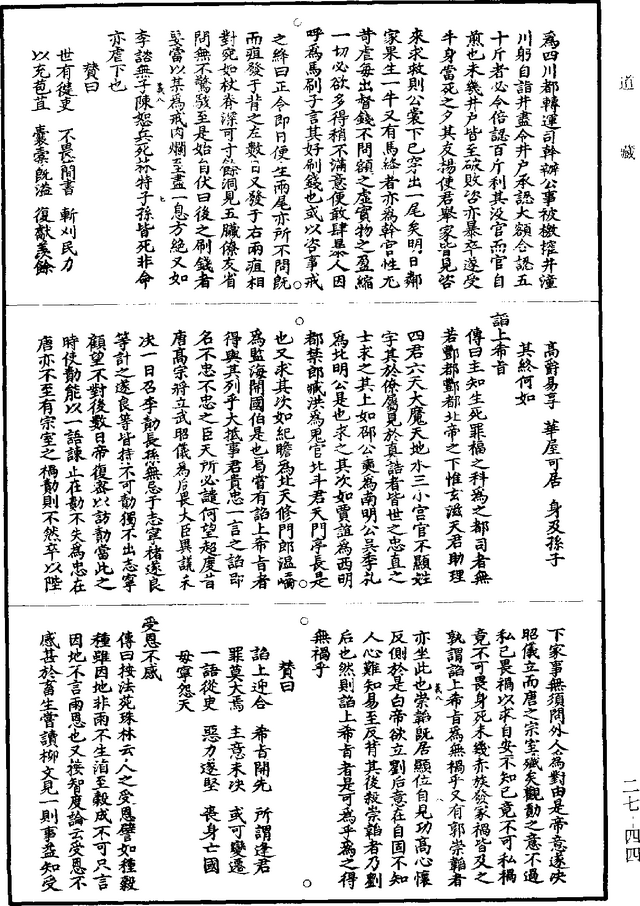 道藏
為四川都轉運司幹辦公事被檄搾井潼
川躬自詣井盡令井戶承認大額合認五
十斤者必令倍認百斤利其沒官而官自
煎也未幾井戶皆至破敗咨亦暴卒遂受
牛身當死之夕其友揚使君舉家皆見咨
來求救則公裳下已穿出一尾矣明日鄰
家果生一牛又有馬絳者亦為幹官性尤
苛虐每出督錢不問額之虛實物之盈縮
一切必欲多得稍不滿意便敢肆暴人因
呼為馬刷子言其好刷錢也或以咨事戒
之絳曰正令即日便生兩尾亦所不問旣
而疽發于背之左數日又發于右兩疽相
對宛如杖脊深可寸餘洞見五臟僚友省
問無不驚駭至是始自伏曰後之刷錢者
㝡當以某為戒肉爛至盡一息方絶又如
李諮無子陳恕兵死林特子孫皆死非命
亦虐下也
贊曰
世有健吏　不畏簡書　斬刈民力
以充苞苴　囊橐旣溢　復獻羨餘
高爵易享　華屋可居　身及孫子
其終何如
諂上希旨
傳曰主知生死罪福之科為之都司者無
若酆都酆都北帝之下惟玄滋天君助理
四君六天大魔天地水三小宮官不顯姓
字其於僚屬見於真誥者皆世之忠直之
士求之其上如邵公奭為南明公吳季札
為北明公是也求之其次如賈誼為西明
都禁郎臧洪為鬼官北斗君天門亭長是
也又求其次如紀瞻為北天修門郎溫嶠
為監海開國伯是也曷當有諂上希旨者
得與其列乎大抵事君貴忠一言之諂即
名不忠不忠之臣天所必譴何望超度昔
唐髙宗將立武昭儀為后畏大臣異議未
次一日召李勣長孫無忌于志寧褚遂良
等計之遂良等皆持不可勣獨不出志寧
顧望不對後數日帝復密以訪勣當此之
時使勣能以一語諫止在勣不失為忠在
唐亦不至有宗室之禍勣則不然卒以陛
下家事無須問外人為對由是帝意遂決
昭儀立而唐之宗室殲矣觀勣之意不過
私己畏禍以求自安不知己竟不可私禍
竟不可畏身死未幾赤族發冢禍皆及之
孰謂諂上希旨為無禍乎又有郭崇韜者
亦坐此也崇韜旣居顯位自見功高心懷
反側於是白帝欲立劉后意在自固不知
人心難知易至反背其後殺崇韜者乃劉
后也然則諂上希旨者是可為乎為之得
無禍乎
贊曰
諂上迎合　希旨開先　所謂逢君
罪莫大焉　主意未决　或可變遷
一語從臾　惡力遂堅　喪身亡國
毋寧怨天
受恩不感
傳曰按法苑珠林云人之受恩譬如種穀
種雖因地非雨不生洎至穀成不可只言
因地不言雨恩也又按智度論云受恩不
感甚於畜生嘗讀柳文見一則事益知受
二七·四四